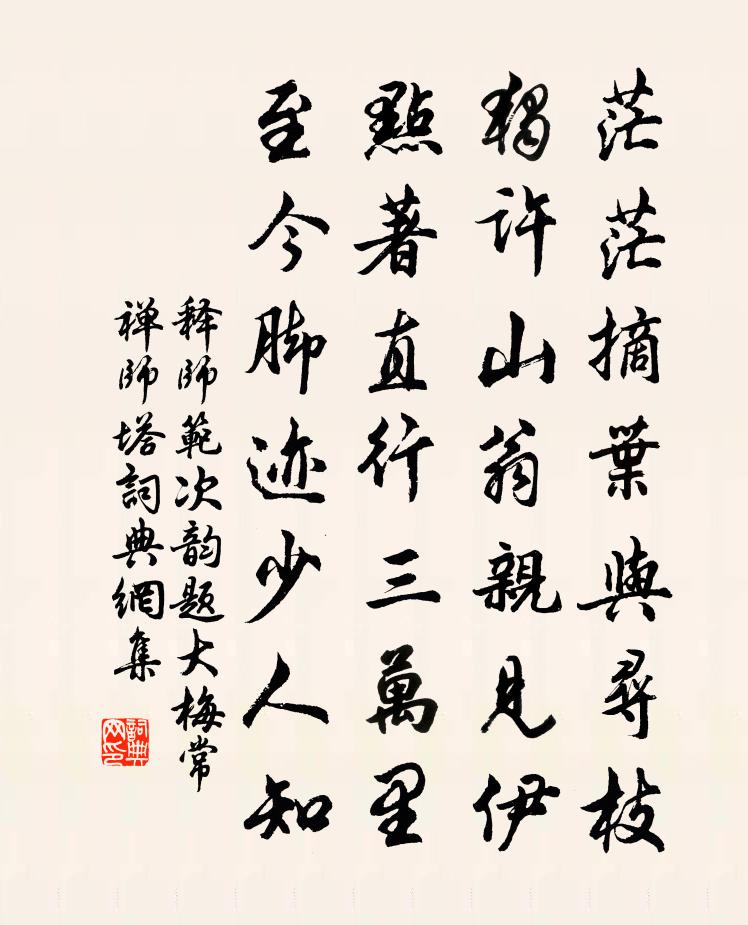 茫茫摘葉與尋枝
獨許山翁親見伊
點著直行三萬里
至今脚迹少人知
释師範次韵题大梅常
禅師塔詞典網集
詞典网印